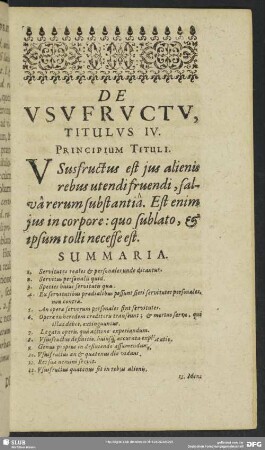 DE
VSVFRVCTV,
TITULUS IV.
PRINCIPIUM TITULI.
VSusfructus est jus alienis
rebus utendi fruendi, sal-
vâ rerum substantiâ. Est enim
jus in corpore: quo sublato, &
ipsum tolli necesse est.
SUMMARIA.
1. Servitutes reales & personales unde dicantur.
2. Servitus personalis quid.
3. Species hujus servitutis quæ.
4. Ex servitutibus prædialibus possunt fieri servitutes personales,
non contra.
5. An opera servorum personales sint servitutes.
6. Opera ad heredem creditoris transeunt; & mortuo servo, qui
illas debet, extinguuntur.
7. Legato operis, qua actione experiundum.
8. Ususfructus definitio, hujusq; accurata explicatio.
9. Genus proprie in definiendo assumendum.
10. Ususfructus an & quatenus dici
12. Ususfructus quatenus sit in rebus alienis.
13. Mens
SLUB